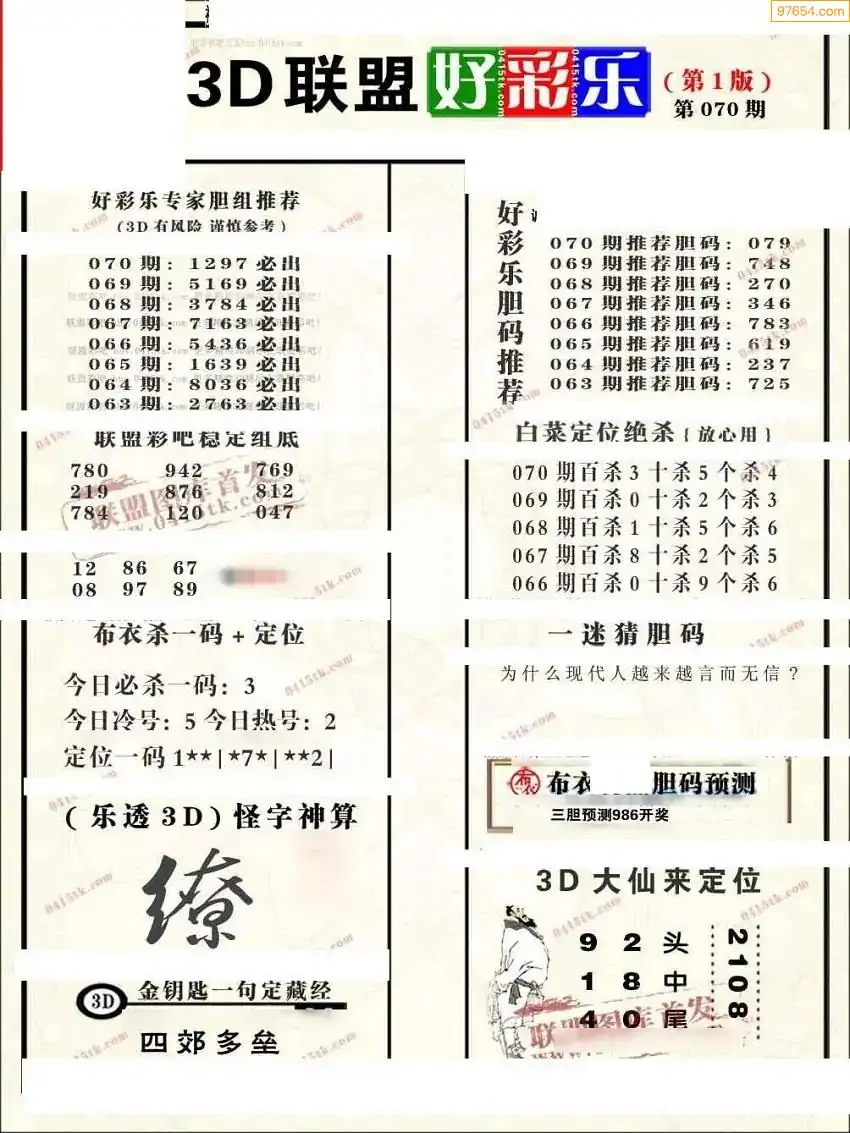 97654.com
3D联盟好彩乐(第1版)
第070期
好彩乐专家胆组推荐
(3D有风险 谨慎参考)
070期: 1297必出
069期: 5169必出
068期: 3784必出
067期: 7163必出
066期: 5436必出
065期: 1639必出
064期: 8036必出
063期: 2763必出
联盟彩吧稳定组底
780 942 769
219 876 812
784 120 047
12 86 67
08 97 89
布衣杀一码+定位
今日必杀一码: 3
今日冷号: 5 今日热号: 2
定位一码 1**|*7*|**2|
(乐透3D)怪字神算
缭
3D 金钥匙一句定藏经
四郊多垒
好彩乐胆码推荐
070期推荐胆码: 079
069期推荐胆码: 748
068期推荐胆码: 270
067期推荐胆码: 346
066期推荐胆码: 783
065期推荐胆码: 619
064期推荐胆码: 237
063期推荐胆码: 725
白菜定位绝杀{放心用}
070期百杀3十杀5个杀4
069期百杀0十杀2个杀3
068期百杀1十杀5个杀6
067期百杀8十杀2个杀5
066期百杀0十杀9个杀6
一迷猜胆码
为什么现代人越来越言而无信?
布衣 胆码预测
三胆预测986开奖
3D大仙来定位
9 2 头
1 8 中
4 0 尾
2108
联盟图库首发
www.0415tk.com
0415tk.com